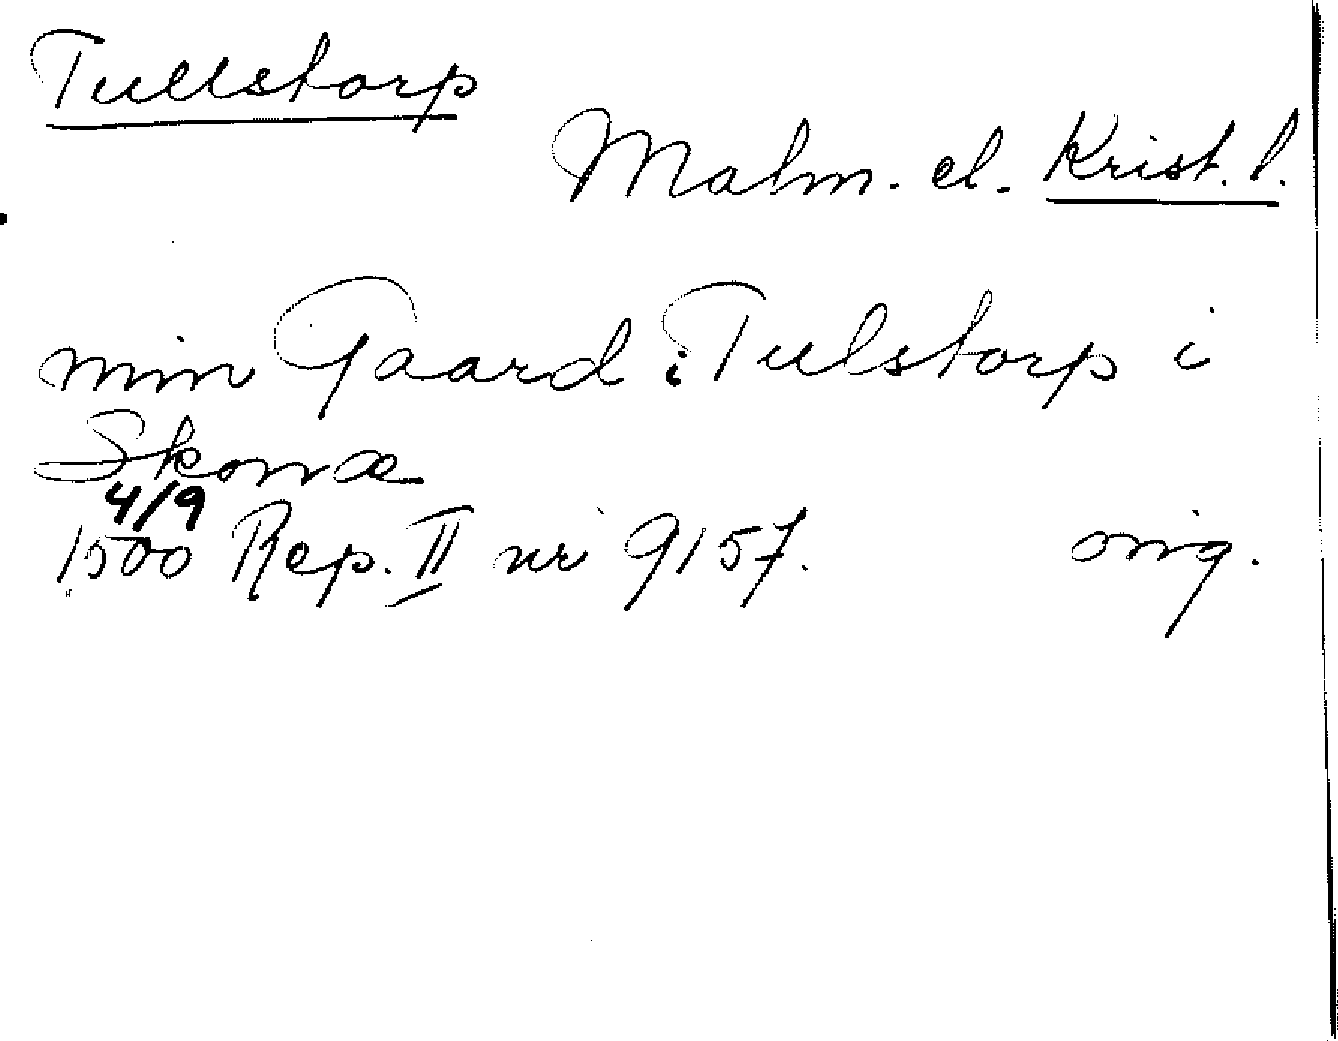 Tullstorp
Malm. el. Krist. l.
min Gaard i Tulstorp i
Skonæ
4/9
1500 Rep. II nr 9157. orig.